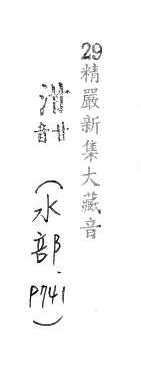 29精嚴新集大藏音
(水部 P741)